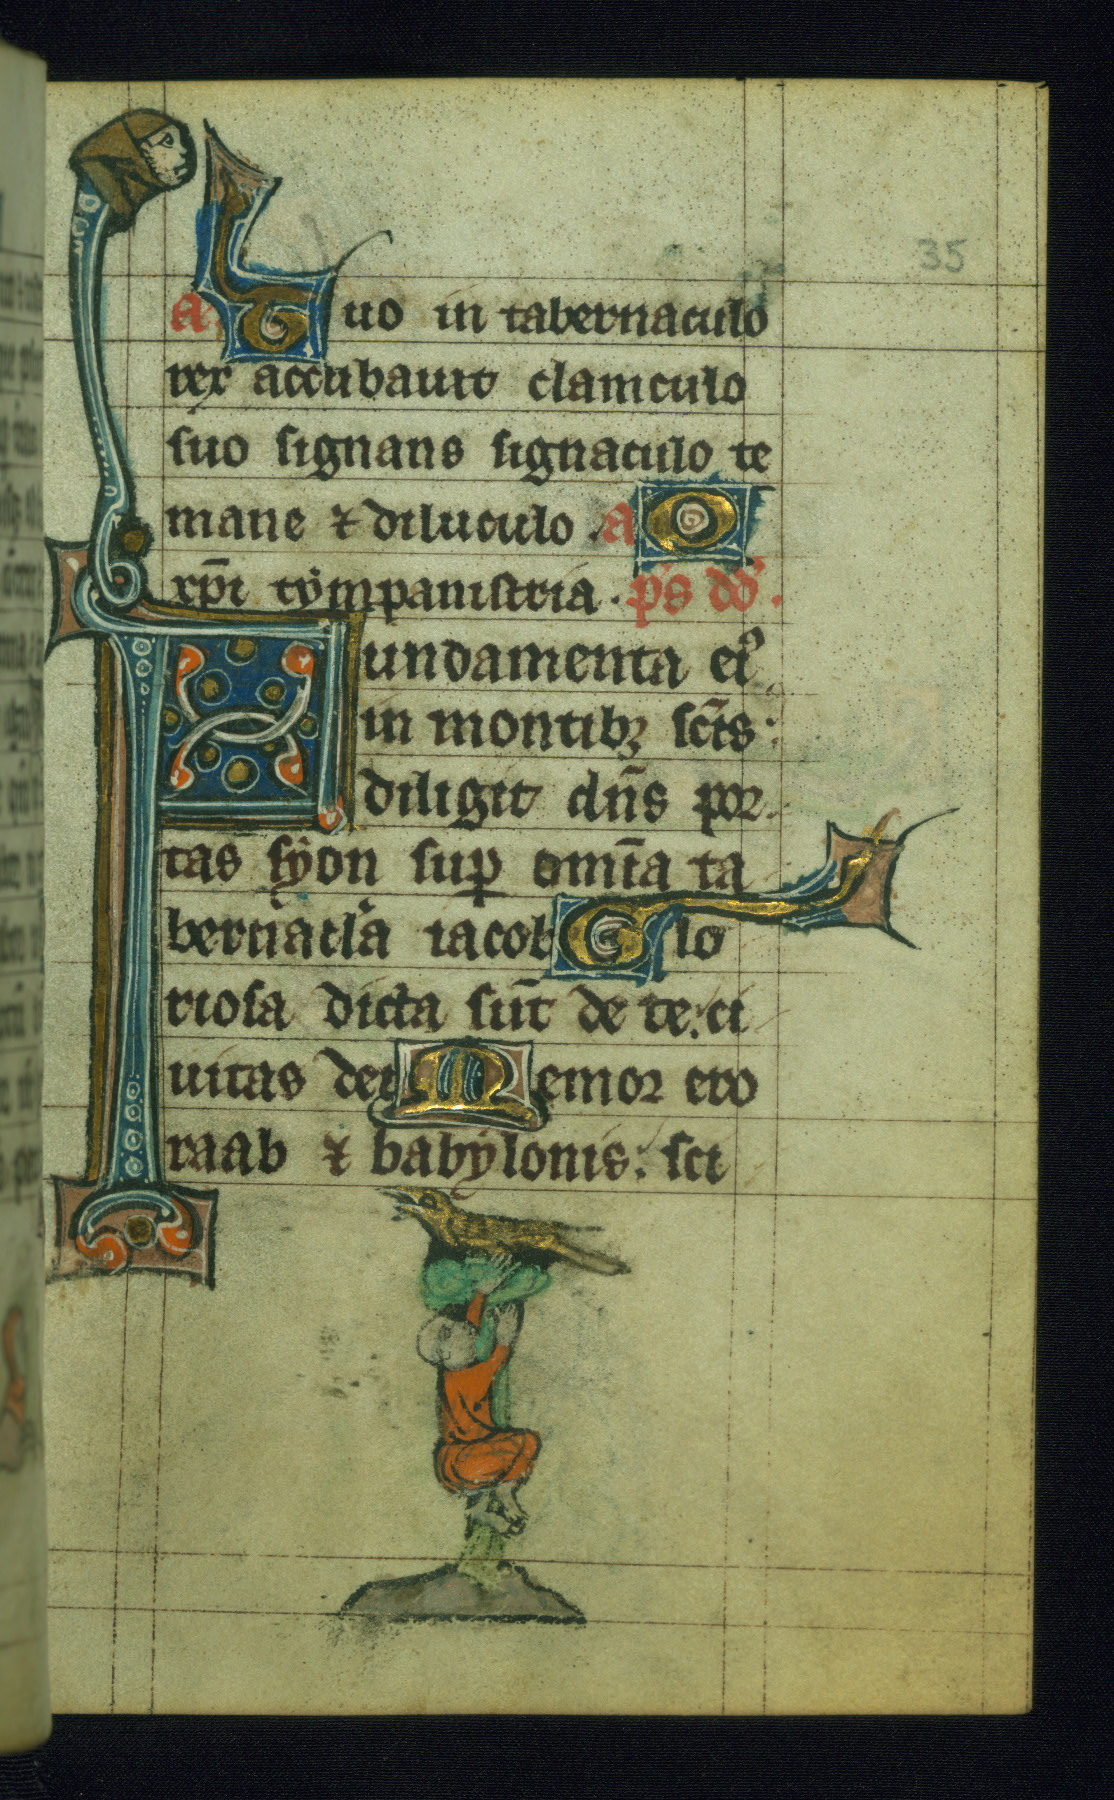 35
a. Tuo in tabernaculo
rex accubauit clamculo
suo signans signaculo te
mane ⁊ diluculo. a O
xp̄i tẏmpanistria. p̄s dd̓.
Fundamenta eiꝰ
in montibꝫ sc̄is:
diligit dn̄s por
tas sẏon sup̱ om̄ia ta
bernacl̓a iacob Glo
riosa dicta sūt de te: ci
uitas dei Memor ero
raab ⁊ babẏlonis: sci